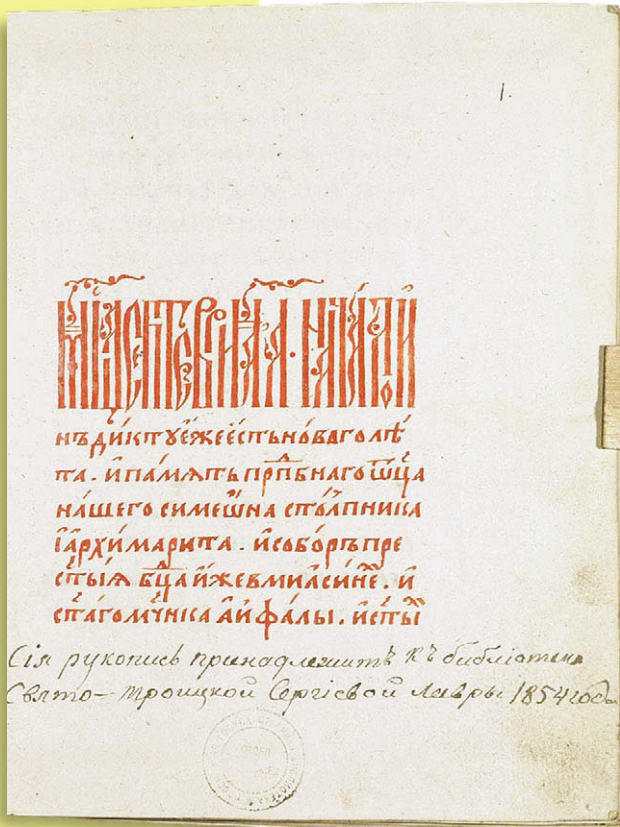 1.
мц҃а септеврїа
нъдиктꙋ еже есть новаго лѣ
та. и памѧть прпⷣбнаго ѿц҃а
нашего симеѡна столпника
і архимарита. и соборъ пре
ст҃ыѧ бц҃а иже в миасинеⷯ. и
ст҃аго мч҃нка аифалы. и ст҃ыⷯ
Сія рукопись принадлежитъ къ библіотекѣ
Свято-Троицкой Сергіевой Лавры 1854 года